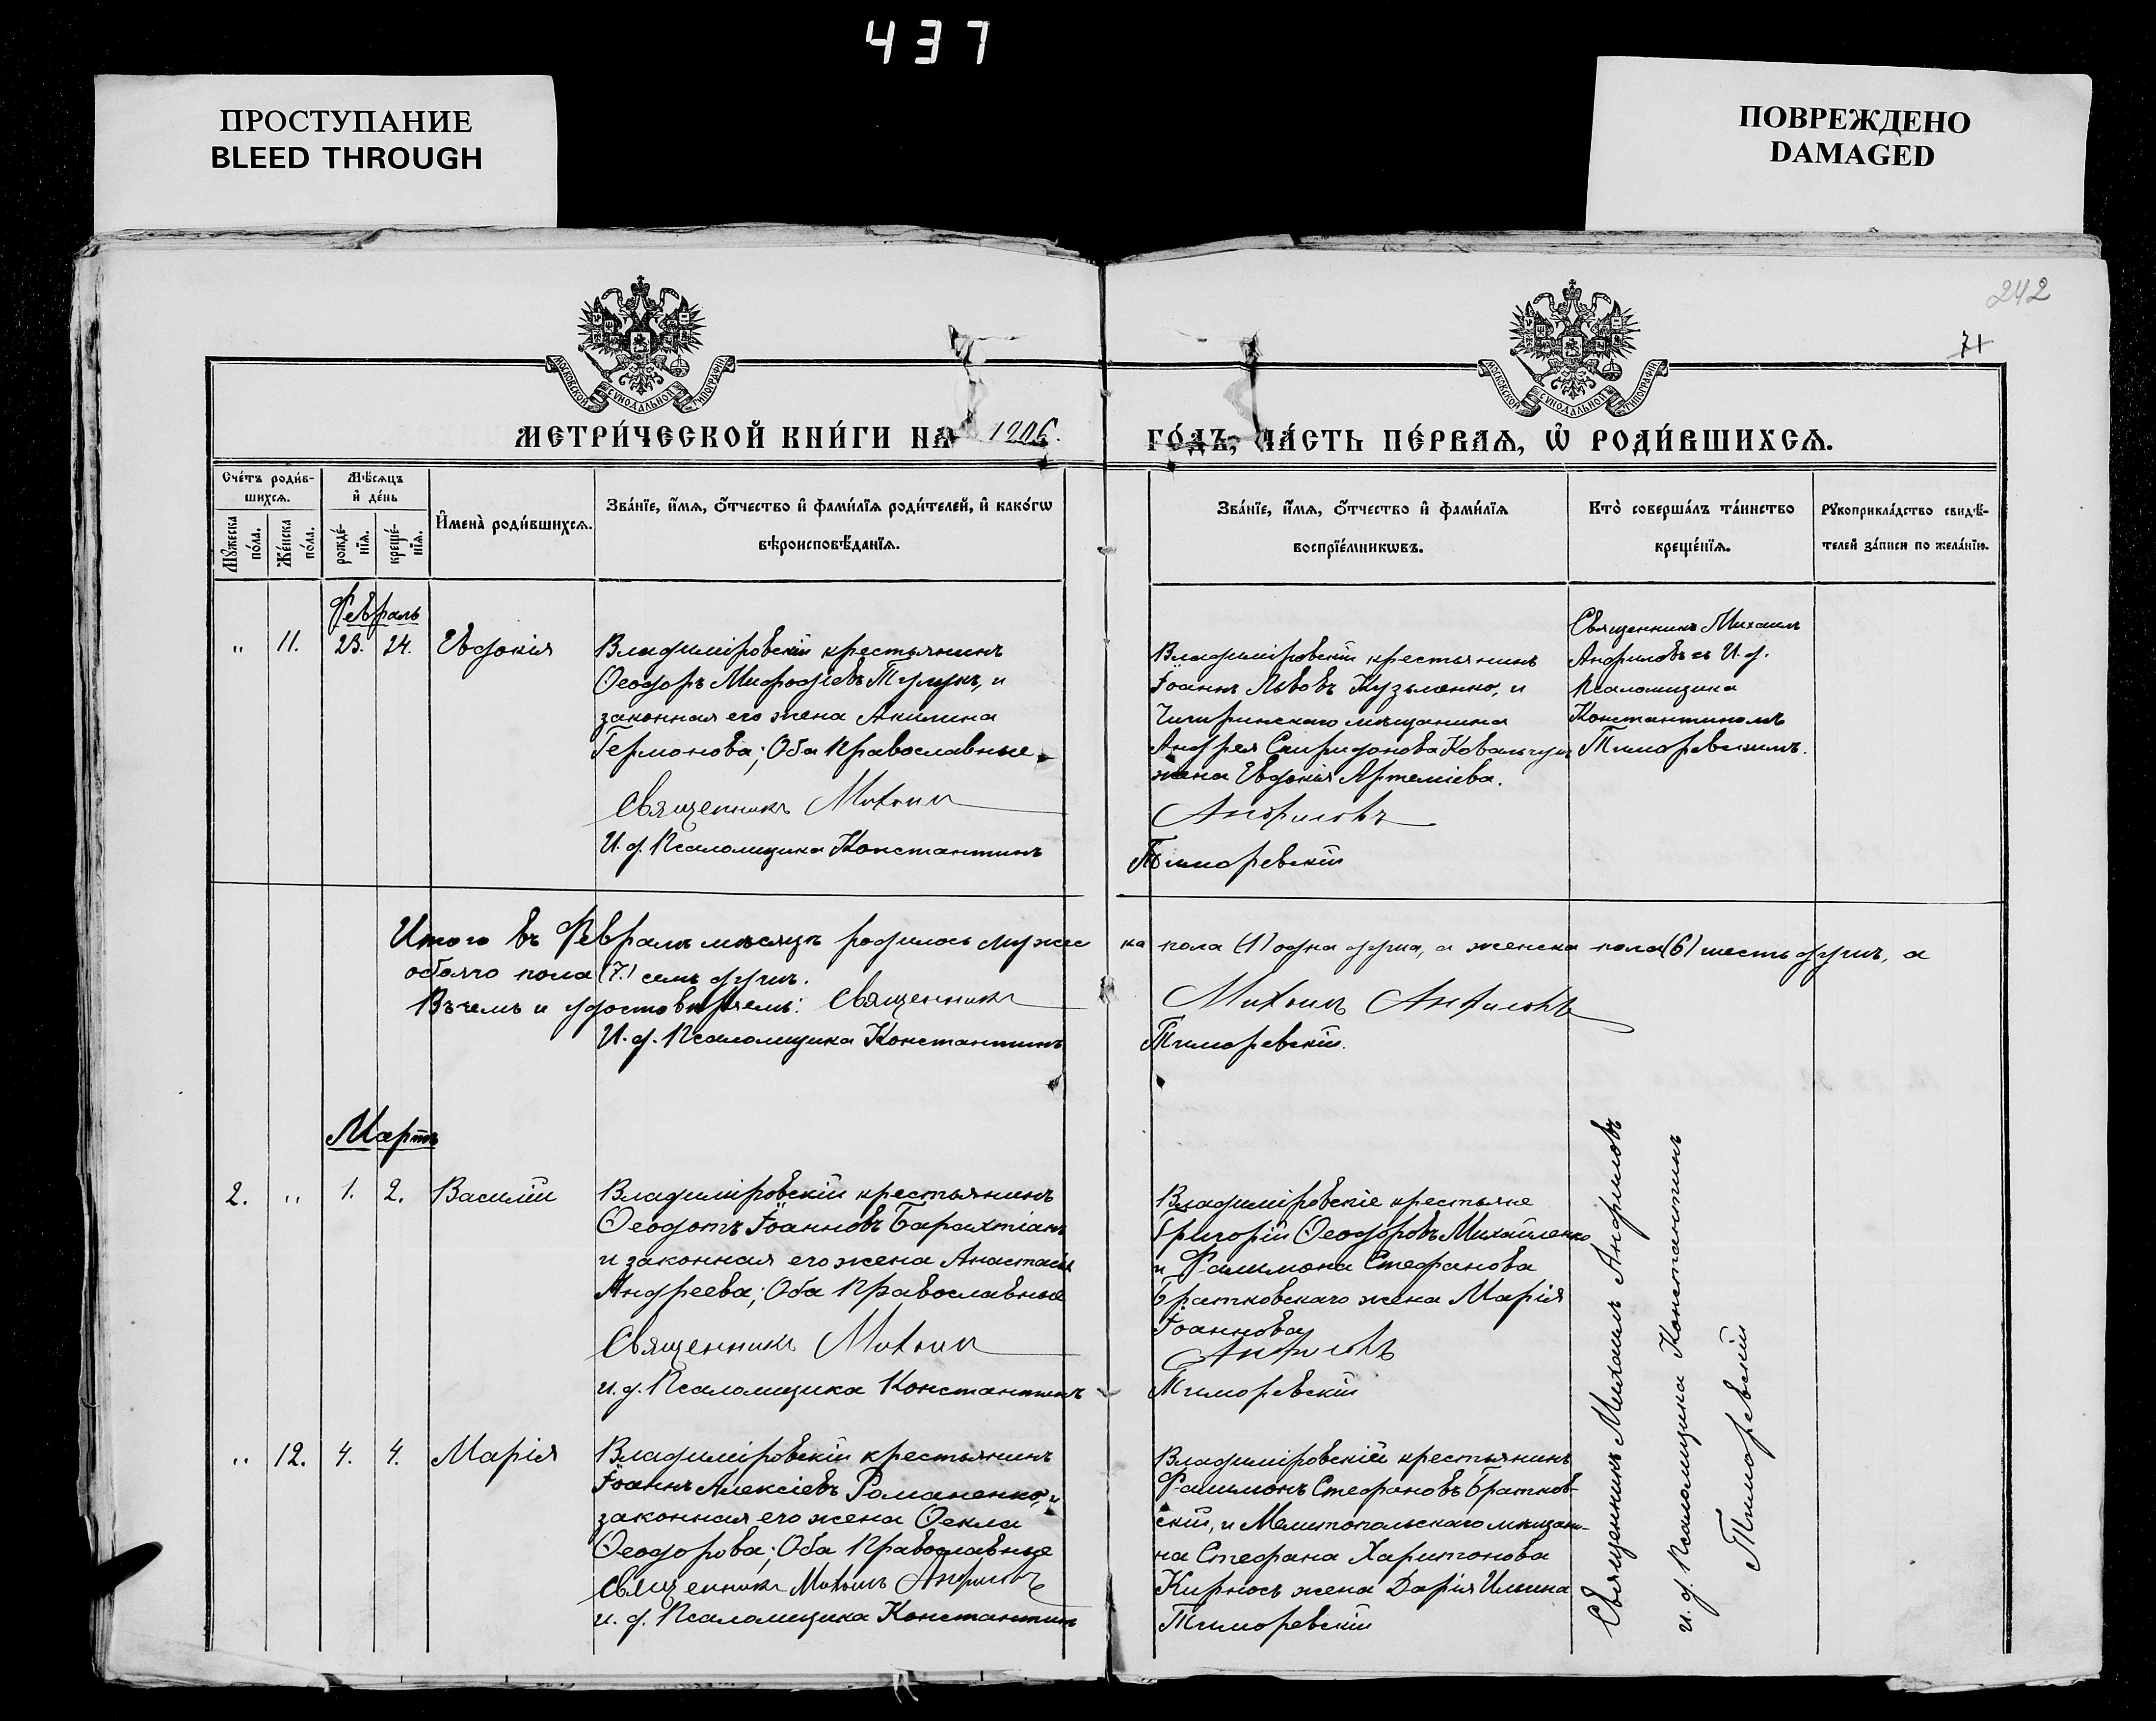 437
ПРОСТУПАНИЕ
BLEED THROUGH
ПОВРЕЖДЕНО
DAMAGED
242
71
МОСКОВСКОЙ СѴНОДАЛЬНОЙ ТИПОГРАФІИ
МОСКОВСКОЙ СѴНОДАЛЬНОЙ ТИПОГРАФІИ
МЕТРИ́ЧЕСКОЙ КНИ́ГИ НА 1906. ГО́ДЪ, ЧА́СТЬ ПЕ́РВАЯ, Ѡ РОДИ́ВШИХСЯ.
Сче́тъ роди́в-
шихся.
Мꙋ́жеска
по́ла.
Же́нска
по́ла.
Мѣ́сяцъ
и҆ де́нь
рожде́-
нїя.
креще́-
нїя.
И҆мена̀ роди́вшихся.
Зва́нїе, и҆́мя, ѻ҆́тчество и҆ фами́лїя роди́телей, и҆ како́гѡ
вѣроисповѣ́данїя.
Зва́нїе, и҆́мя, ѻ҆́тчество и҆ фами́лїя
воспрїе́мникѡвъ.
Кто̀ соверша́лъ та́инство
креще́нїя.
Рꙋкоприкла́дство свидѣ́-
телей за́писи по жела́нїю.
Февраль
" 11. 23. 24. Евдокія
Владимíровскій крестьянинъ
Ѳеодоръ Мефодіевъ Тулукъ, и
законная его жена Акилина
Германова; Оба Православные
Священникъ Михаилъ
И. д. Псаломщика Константинъ
Владиміровскій крестьянинъ
Іоаннъ Львовъ Кузьменко, и
Чигиринскаго мѣщанина
Андрея Спиридонова Ковальчукъ
жена Евдокія Артеміева.
Анфиловъ
Тиморевскій
Священникъ Михаилъ
Анфиловъ съ И. д.
Псаломщика
Константиномъ
Тиморевскимъ.
Итого въ Февралѣ мѣсяцѣ родилось мужес ка пола (1) одна душа, а женска пола (6) шесть душъ, а
обоего пола (7) семь душъ.
Въ чемъ и удостовѣряемъ: Священникъ Михаилъ Анфиловъ
И. д. Псаломщика Константинъ Тиморевскій.
Мартъ
2. " 1. 2. Василій
Владиміровскій крестьянинъ
Ѳеодотъ Іоанновъ Барахтіанъ
и законная его жена Анастасія
Андреева; Оба Православные
Священникъ Михаилъ
и. д. Псаломщика Константинъ
Владиміровскіе крестьяне
Григорій Ѳеодоровъ Михайленко
и Филимона Стефанова
Братковскаго жена Марія
Іоаннова
Анфиловъ
Тиморевскій
" 12. 4. 4. Марія
Владиміровскій крестьянинъ
Іоаннъ Алексіевъ Романенко, и
законная его жена Ѳекла
Ѳеодорова; Оба Православные
Священникъ Михаилъ Анфиловъ
и. д. Псаломщика Константинъ
Владиміровскій крестьянинъ
Филимонъ Стефановъ Братков-
скій, и Мелитопольскаго мѣщани-
на Стефана Харитонова
Кирносъ жена Дарія Ильина
Тиморевскій
Священникъ Михаилъ Анфиловъ
и. д. Псаломщика Константинъ
Тиморевскій